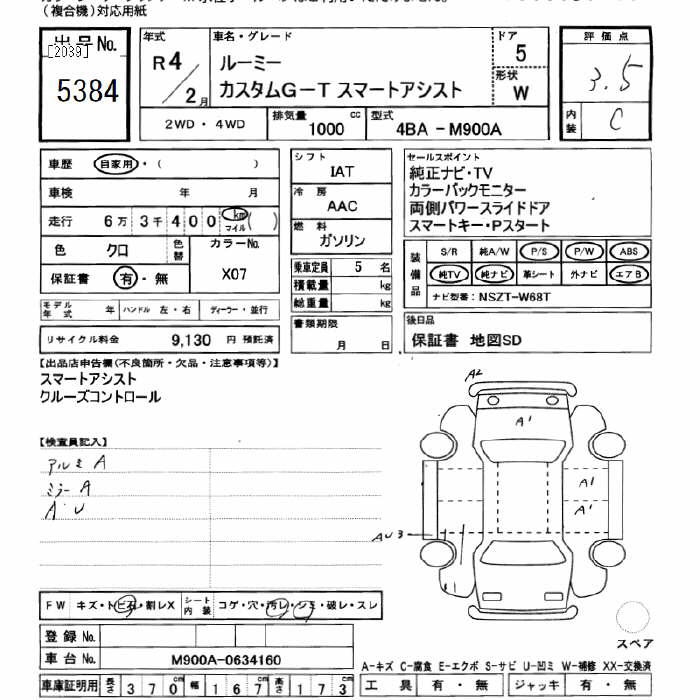 (複合機)対応用紙
出品No.
[2039]
5384
年式
R4/2月
車名・グレード
ルーミー
カスタムG-T スマートアシスト
ドア
5
形状
W
評価点
3.5
内装
C
2WD・4WD
排気量
1000
cc
型式
4BA -M900A
車歴 自家用・( )
車検 年 月
走行 6万3千400 km マイル ( )
色 クロ
色替
カラーNo.
X07
保証書 有・無
モデル年式 年 ハンドル 左・右 ディーラー・並行
リサイクル料金 9,130 円 預託済
シフト
IAT
冷房
AAC
燃料
ガソリン
乗車定員 5 名
積載量 kg
総重量 kg
書類期限
月 日
セールスポイント
純正ナビ・TV
カラーバックモニター
両側パワースライドドア
スマートキー・Pスタート
装備品
S/R 純A/W P/S P/W ABS
純TV 純ナビ 革シート 外ナビ エアB
ナビ型番: NSZT-W68T
後日品
保証書 地図SD
【出品店申告欄(不良箇所・欠品・注意事項等)】
スマートアシスト
クルーズコントロール
【検査員記入】
アルミ A
ミラー A
A・U
A2
A1
A1
A1
AU3
FW キズ・トビ石・割レX
シート内装 コゲ・穴・汚レ・シミ・破レ・スレ
登録No.
車台No. M900A-0634160
車庫証明用 長さ 370cm 幅 167cm 高さ 173cm
スペア
A-キズ C-腐食 E-エクボ S-サビ U-凹ミ W-補修 XX-交換済
工具 有・無 ジャッキ 有・無